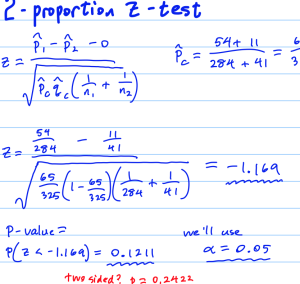 2-proportion Z-test
z = (p̂₁ - p̂₂ - 0) / √(p̂c q̂c (1/n₁ + 1/n₂))
p̂c = (54 + 11) / (284 + 41) =
z = (54/284 - 11/41) / √(65/325 (1 - 65/325) (1/284 + 1/41)) = -1.169
P-value =
we'll use
P(z < -1.169) = 0.1211
α = 0.05
two sided? p = 0.2422